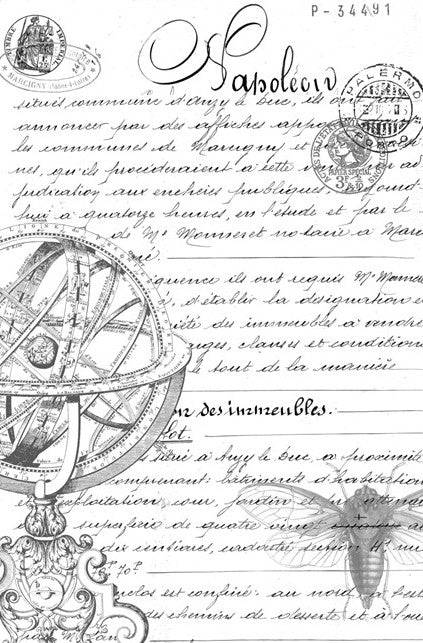 P-34491
TIMBRE IMPÉRIAL
MARCIGNY
Napoléon
PALERMO
situés commune d'Anzy le Duc, ils ont fait
annoncer par des affiches appo
les communes de Marcigny et
nes, qu'ils procéderaient à cette ad
PAPIER SPECIAL
judication aux enchères publiques
3F
hui à quatorze heures, en l'étude et par le
de Me Monneret notaire à Marc
quence ils ont requis Me Monne
, d'établir la désignation e
iété des immeubles à vendre
arges, clauses et condition
le tout de la manière
on des immeubles.
lot.
situé à Anzy le Duc, à proximité
comprenant: bâtiments d'habitation
et exploitation cour, jardin et
superficie de quatre vingt
dix centiares, cadastré section H. nu
70P
enclos est confiné: au nord, à l'est
des chemins de desserte et à l'ou